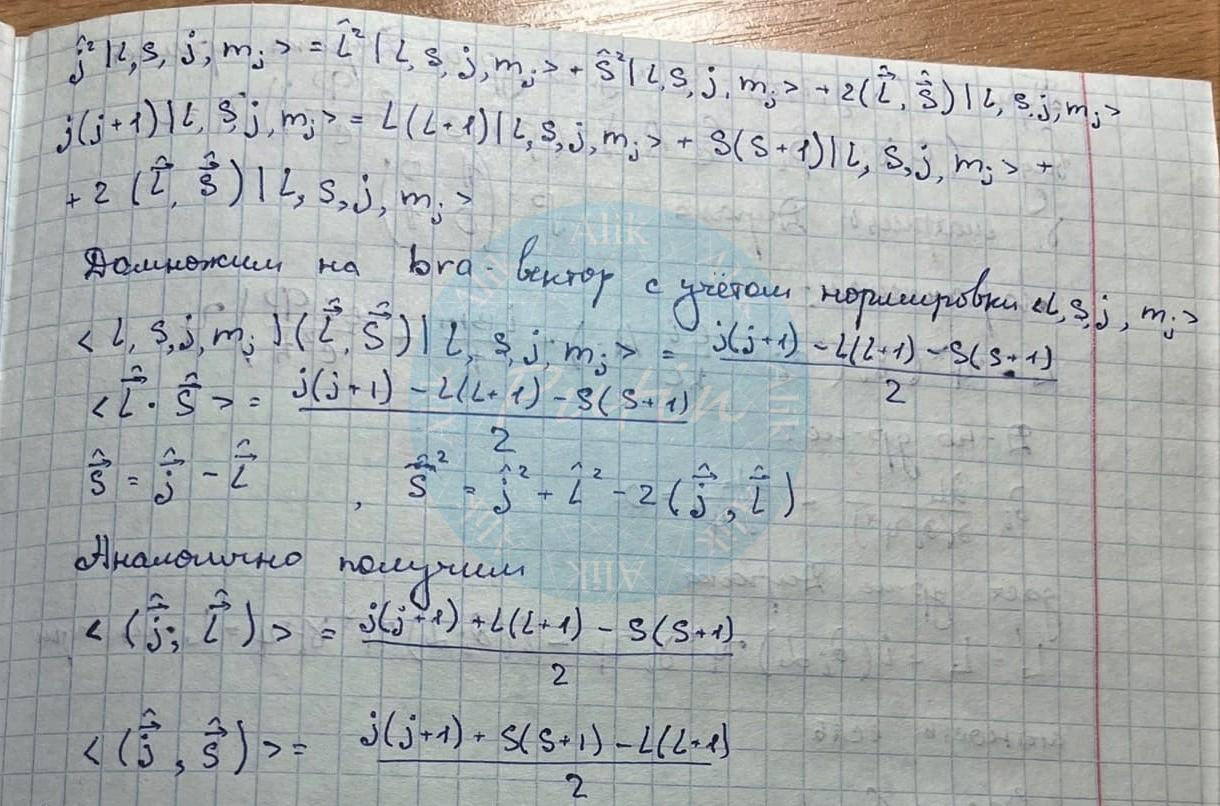 ĵ²|L, s, j, m_j> = L̂²|L, s, j, m_j> + ŝ²|L, s, j, m_j> + 2(L̂⃗, ŝ⃗)|L, s, j, m_j>
j(j+1)|L, s, j, m_j> = L(L+1)|L, s, j, m_j> + s(s+1)|L, s, j, m_j> +
+ 2(L̂⃗, ŝ⃗)|L, s, j, m_j>
Домножим на bra-вектор с учётом нормировки <L, s, j, m_j>
<L, s, j, m_j|(L̂⃗, ŝ⃗)|L, s, j, m_j> = (j(j+1) - L(L+1) - s(s+1))/2
<L̂⃗ · ŝ⃗> = (j(j+1) - L(L+1) - s(s+1))/2
ŝ⃗ = ĵ⃗ - L̂⃗ , ŝ⃗² = ĵ² + L̂² - 2(ĵ⃗, L̂⃗)
Аналогично получим
<(ĵ⃗; L̂⃗)> = (j(j+1) + L(L+1) - s(s+1))/2
<(ĵ⃗, ŝ⃗)> = (j(j+1) + s(s+1) - L(L+1))/2
Alik